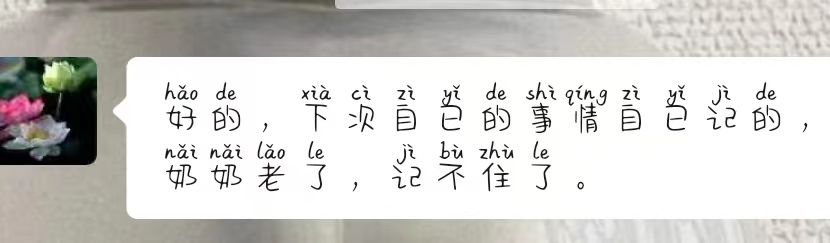 hǎo de xià cì zì yǐ de shì qíng zì yǐ jì de
好的，下次自已的事情自已记的，
nǎi nǎi lǎo le jì bù zhù le
奶奶老了，记不住了。